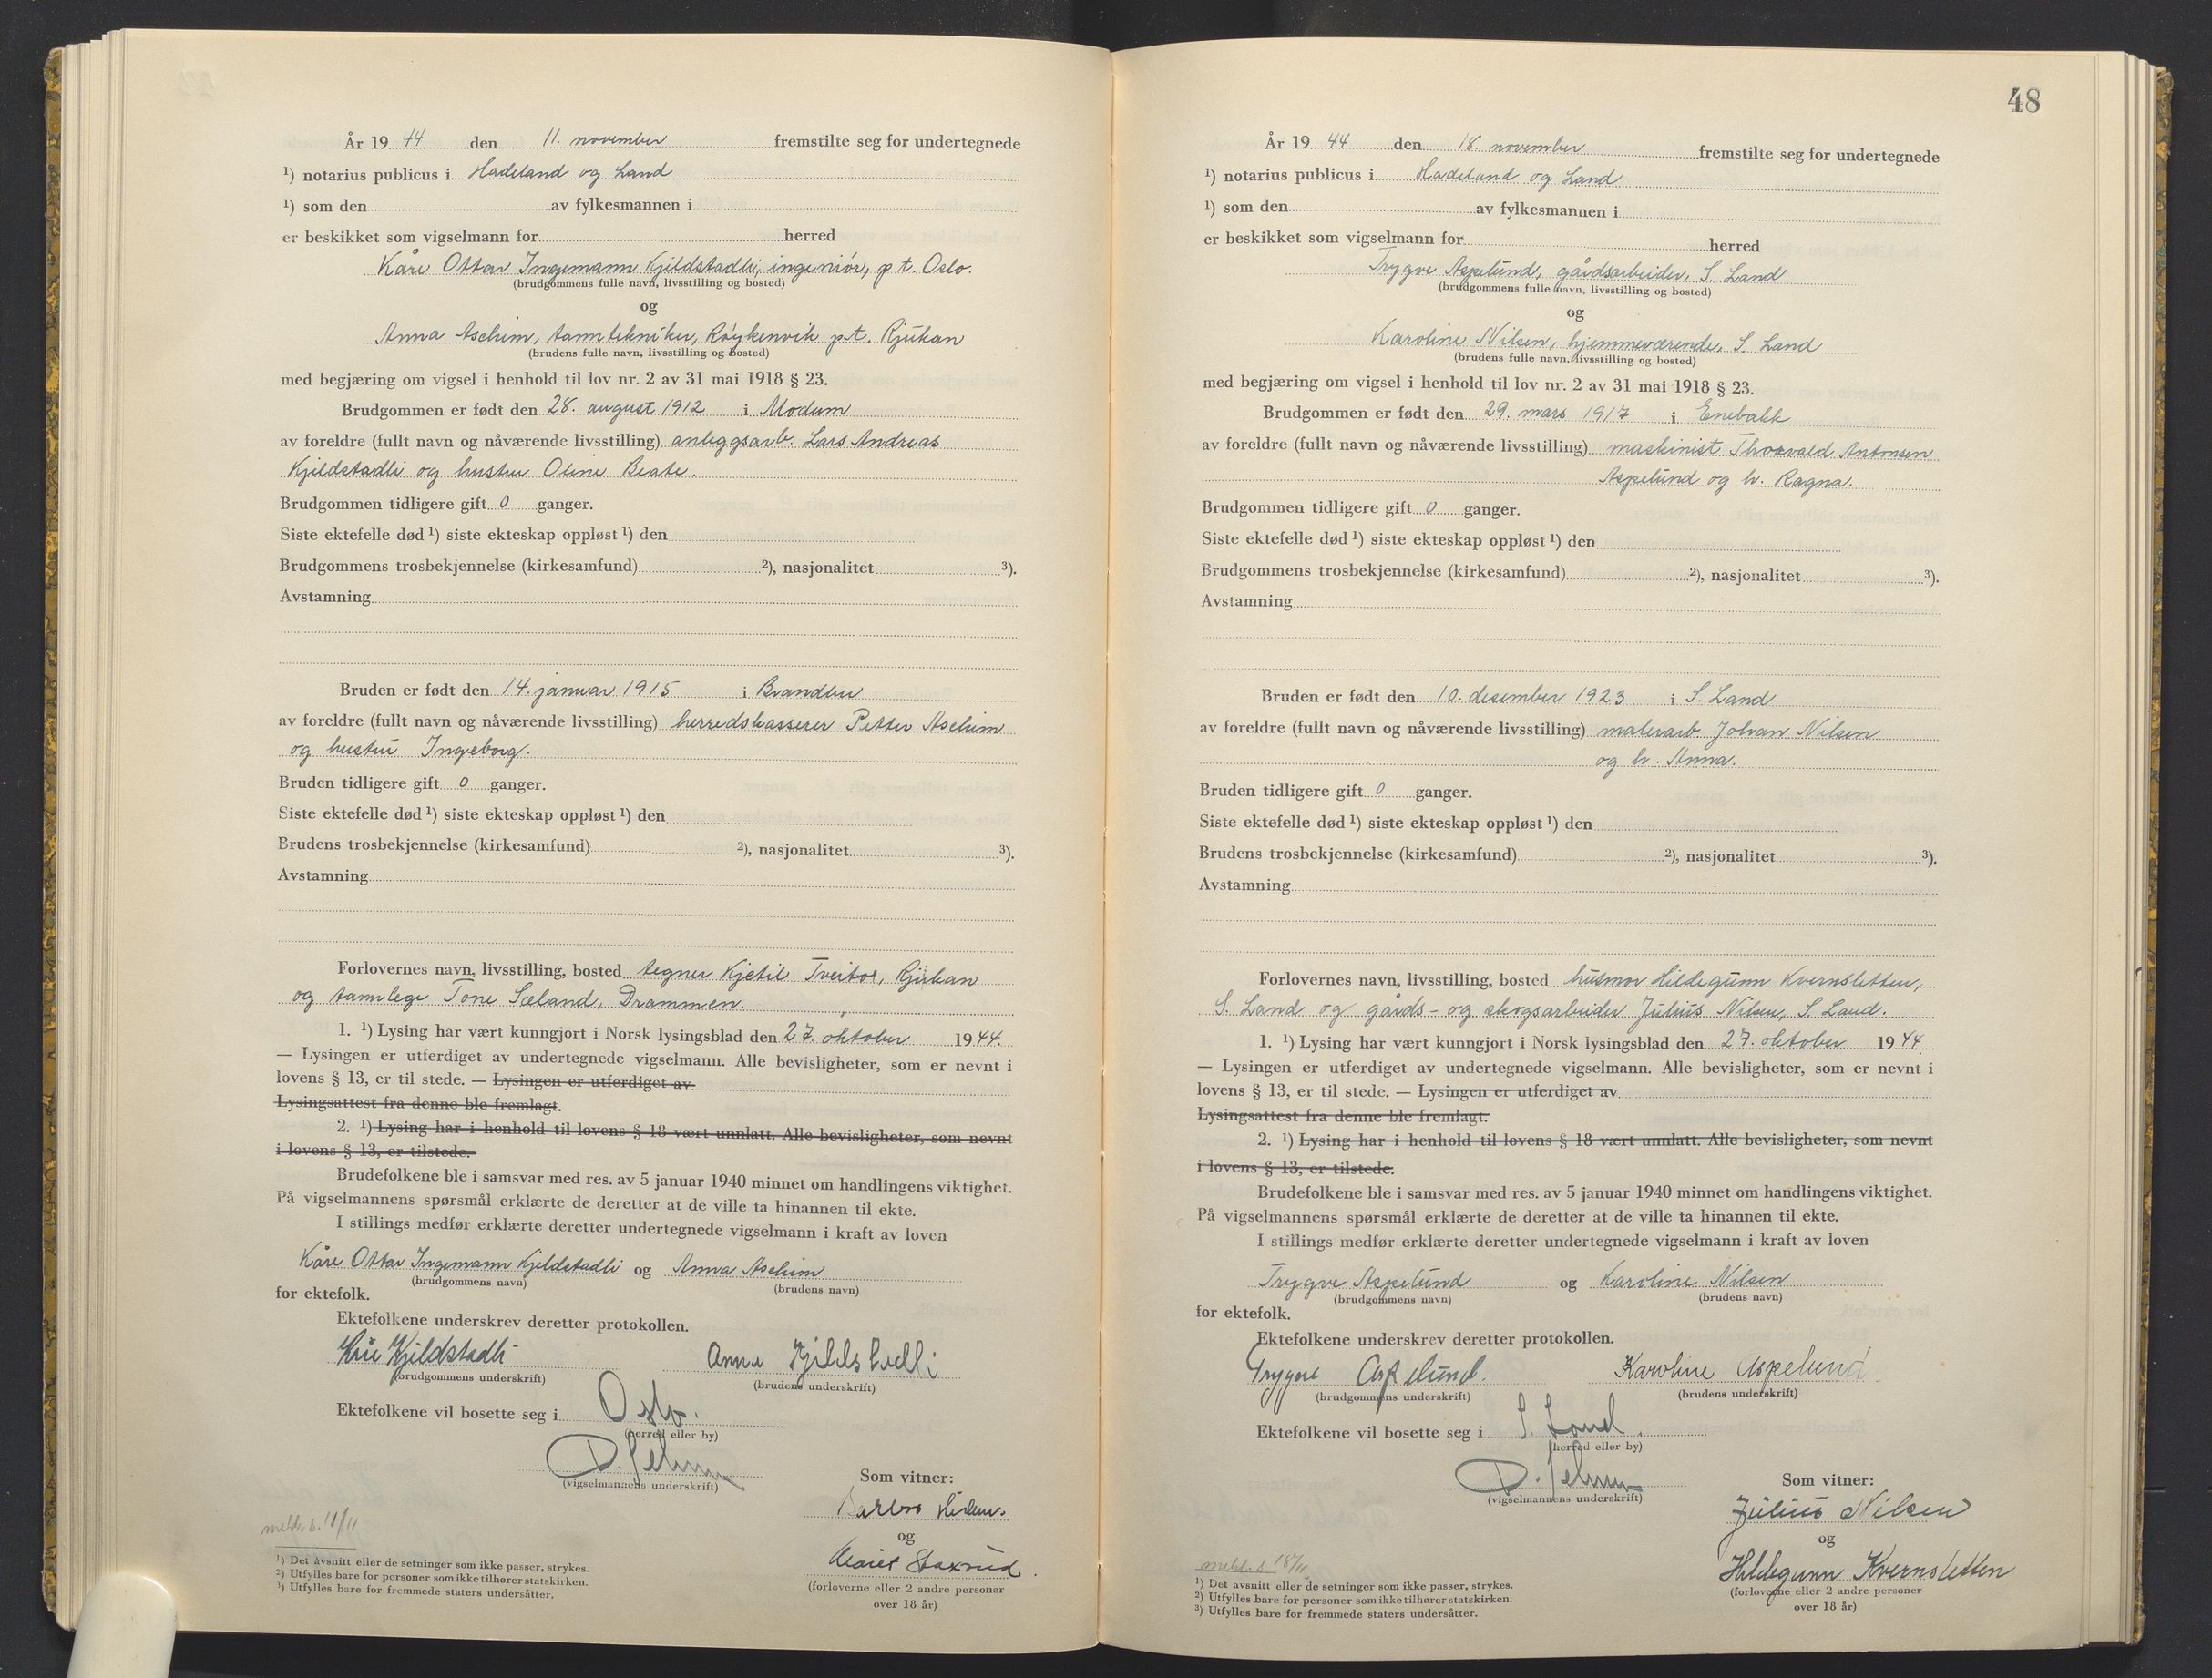 År 1944 den 11. november fremstilte seg for undertegnede
¹) notarius publicus i Hadeland og Land
¹) som den av fylkesmannen i
er beskikket som vigselmann for herred
Kåre Ottar Ingemann Kjeldstadli, ingeniør, p t. Oslo.
(brudgommens fulle navn, livsstilling og bosted)
og
Anna Aschim, tanntekniker, Røykenvik p.t. Rjukan
(brudens fulle navn, livsstilling og bosted)
med begjæring om vigsel i henhold til lov nr. 2 av 31 mai 1918 § 23.
Brudgommen er født den 28. august 1912 i Modum
av foreldre (fullt navn og nåværende livsstilling) anleggsarb. Lars Andreas
Kjeldstadli og hustru Oline Beate.
Brudgommen tidligere gift 0 ganger.
Siste ektefelle død ¹) siste ekteskap oppløst ¹) den
Brudgommens trosbekjennelse (kirkesamfund) ²), nasjonalitet ³).
Avstamning
Bruden er født den 14. januar 1915 i Brandbu
av foreldre (fullt navn og nåværende livsstilling) herredskasserer Petter Aschim
og hustru Ingeborg.
Bruden tidligere gift 0 ganger.
Siste ektefelle død ¹) siste ekteskap oppløst ¹) den
Brudens trosbekjennelse (kirkesamfund) ²), nasjonalitet ³).
Avstamning
Forlovernes navn, livsstilling, bosted tegner Kjetil Tveitor, Rjukan
og tannlege Tone Sæland, Drammen.
1. ¹) Lysing har vært kunngjort i Norsk lysingsblad den 27. oktober 1944.
— Lysingen er utferdiget av undertegnede vigselmann. Alle bevisligheter, som er nevnt i
lovens § 13, er til stede. — Lysingen er utferdiget av
Lysingsattest fra denne ble fremlagt.
2. ¹) Lysing har i henhold til lovens § 18 vært unnlatt. Alle bevisligheter, som nevnt
i lovens § 13, er tilstede.
Brudefolkene ble i samsvar med res. av 5 januar 1940 minnet om handlingens viktighet.
På vigselmannens spørsmål erklærte de deretter at de ville ta hinannen til ekte.
I stillings medfør erklærte deretter undertegnede vigselmann i kraft av loven
Kåre Ottar Ingemann Kjeldstadli og Anna Aschim
(brudgommens navn) (brudens navn)
for ektefolk.
Ektefolkene underskrev deretter protokollen.
Kåre Kjeldstadli Anna Kjeldstadli
(brudgommens underskrift) (brudens underskrift)
Ektefolkene vil bosette seg i Oslo.
(herred eller by)
(vigselmannens underskrift)
Som vitner:
og
Staxrud
(forloverne eller 2 andre personer
over 18 år)
meld. s. 11/11
¹) Det Avsnitt eller de setninger som ikke passer, strykes.
²) Utfylles bare for personer som ikke tilhører statskirken.
³) Utfylles bare for fremmede staters undersåtter.
48
År 1944 den 18. november fremstilte seg for undertegnede
¹) notarius publicus i Hadeland og Land
¹) som den av fylkesmannen i
er beskikket som vigselmann for herred
Trygve Aspelund, gårdsarbeider, S. Land
(brudgommens fulle navn, livsstilling og bosted)
og
Karoline Nilsen, hjemmeværende, S. Land
(brudens fulle navn, livsstilling og bosted)
med begjæring om vigsel i henhold til lov nr. 2 av 31 mai 1918 § 23.
Brudgommen er født den 29. mars 1917 i Enebakk
av foreldre (fullt navn og nåværende livsstilling) maskinist Thorvald Antonsen
Aspelund og h. Ragna.
Brudgommen tidligere gift 0 ganger.
Siste ektefelle død ¹) siste ekteskap oppløst ¹) den
Brudgommens trosbekjennelse (kirkesamfund) ²), nasjonalitet ³).
Avstamning
Bruden er født den 10. desember 1923 i S. Land
av foreldre (fullt navn og nåværende livsstilling) malerarb. Johan Nilsen
og h. Anna.
Bruden tidligere gift 0 ganger.
Siste ektefelle død ¹) siste ekteskap oppløst ¹) den
Brudens trosbekjennelse (kirkesamfund) ²), nasjonalitet ³).
Avstamning
Forlovernes navn, livsstilling, bosted husmor Hildegunn Kvernsletten,
S. Land og gårds- og skogsarbeider Julius Nilsen, S. Land.
1. ¹) Lysing har vært kunngjort i Norsk lysingsblad den 27. oktober 1944
— Lysingen er utferdiget av undertegnede vigselmann. Alle bevisligheter, som er nevnt i
lovens § 13, er til stede. — Lysingen er utferdiget av
Lysingsattest fra denne ble fremlagt.
2. ¹) Lysing har i henhold til lovens § 18 vært unnlatt. Alle bevisligheter, som nevnt
i lovens § 13, er tilstede.
Brudefolkene ble i samsvar med res. av 5 januar 1940 minnet om handlingens viktighet.
På vigselmannens spørsmål erklærte de deretter at de ville ta hinannen til ekte.
I stillings medfør erklærte deretter undertegnede vigselmann i kraft av loven
Trygve Aspelund og Karoline Nilsen
(brudgommens navn) (brudens navn)
for ektefolk.
Ektefolkene underskrev deretter protokollen.
Trygve Aspelund. Karoline Aspelund.
(brudgommens underskrift) (brudens underskrift)
Ektefolkene vil bosette seg i S. Land.
(herred eller by)
(vigselmannens underskrift)
Som vitner:
Julius Nilsen
og
Hildegunn Kvernsletten
(forloverne eller 2 andre personer
over 18 år)
meld. s. 18/11
¹) Det avsnitt eller de setninger som ikke passer, strykes.
²) Utfylles bare for personer som ikke tilhører statskirken.
³) Utfylles bare for fremmede staters undersåtter.